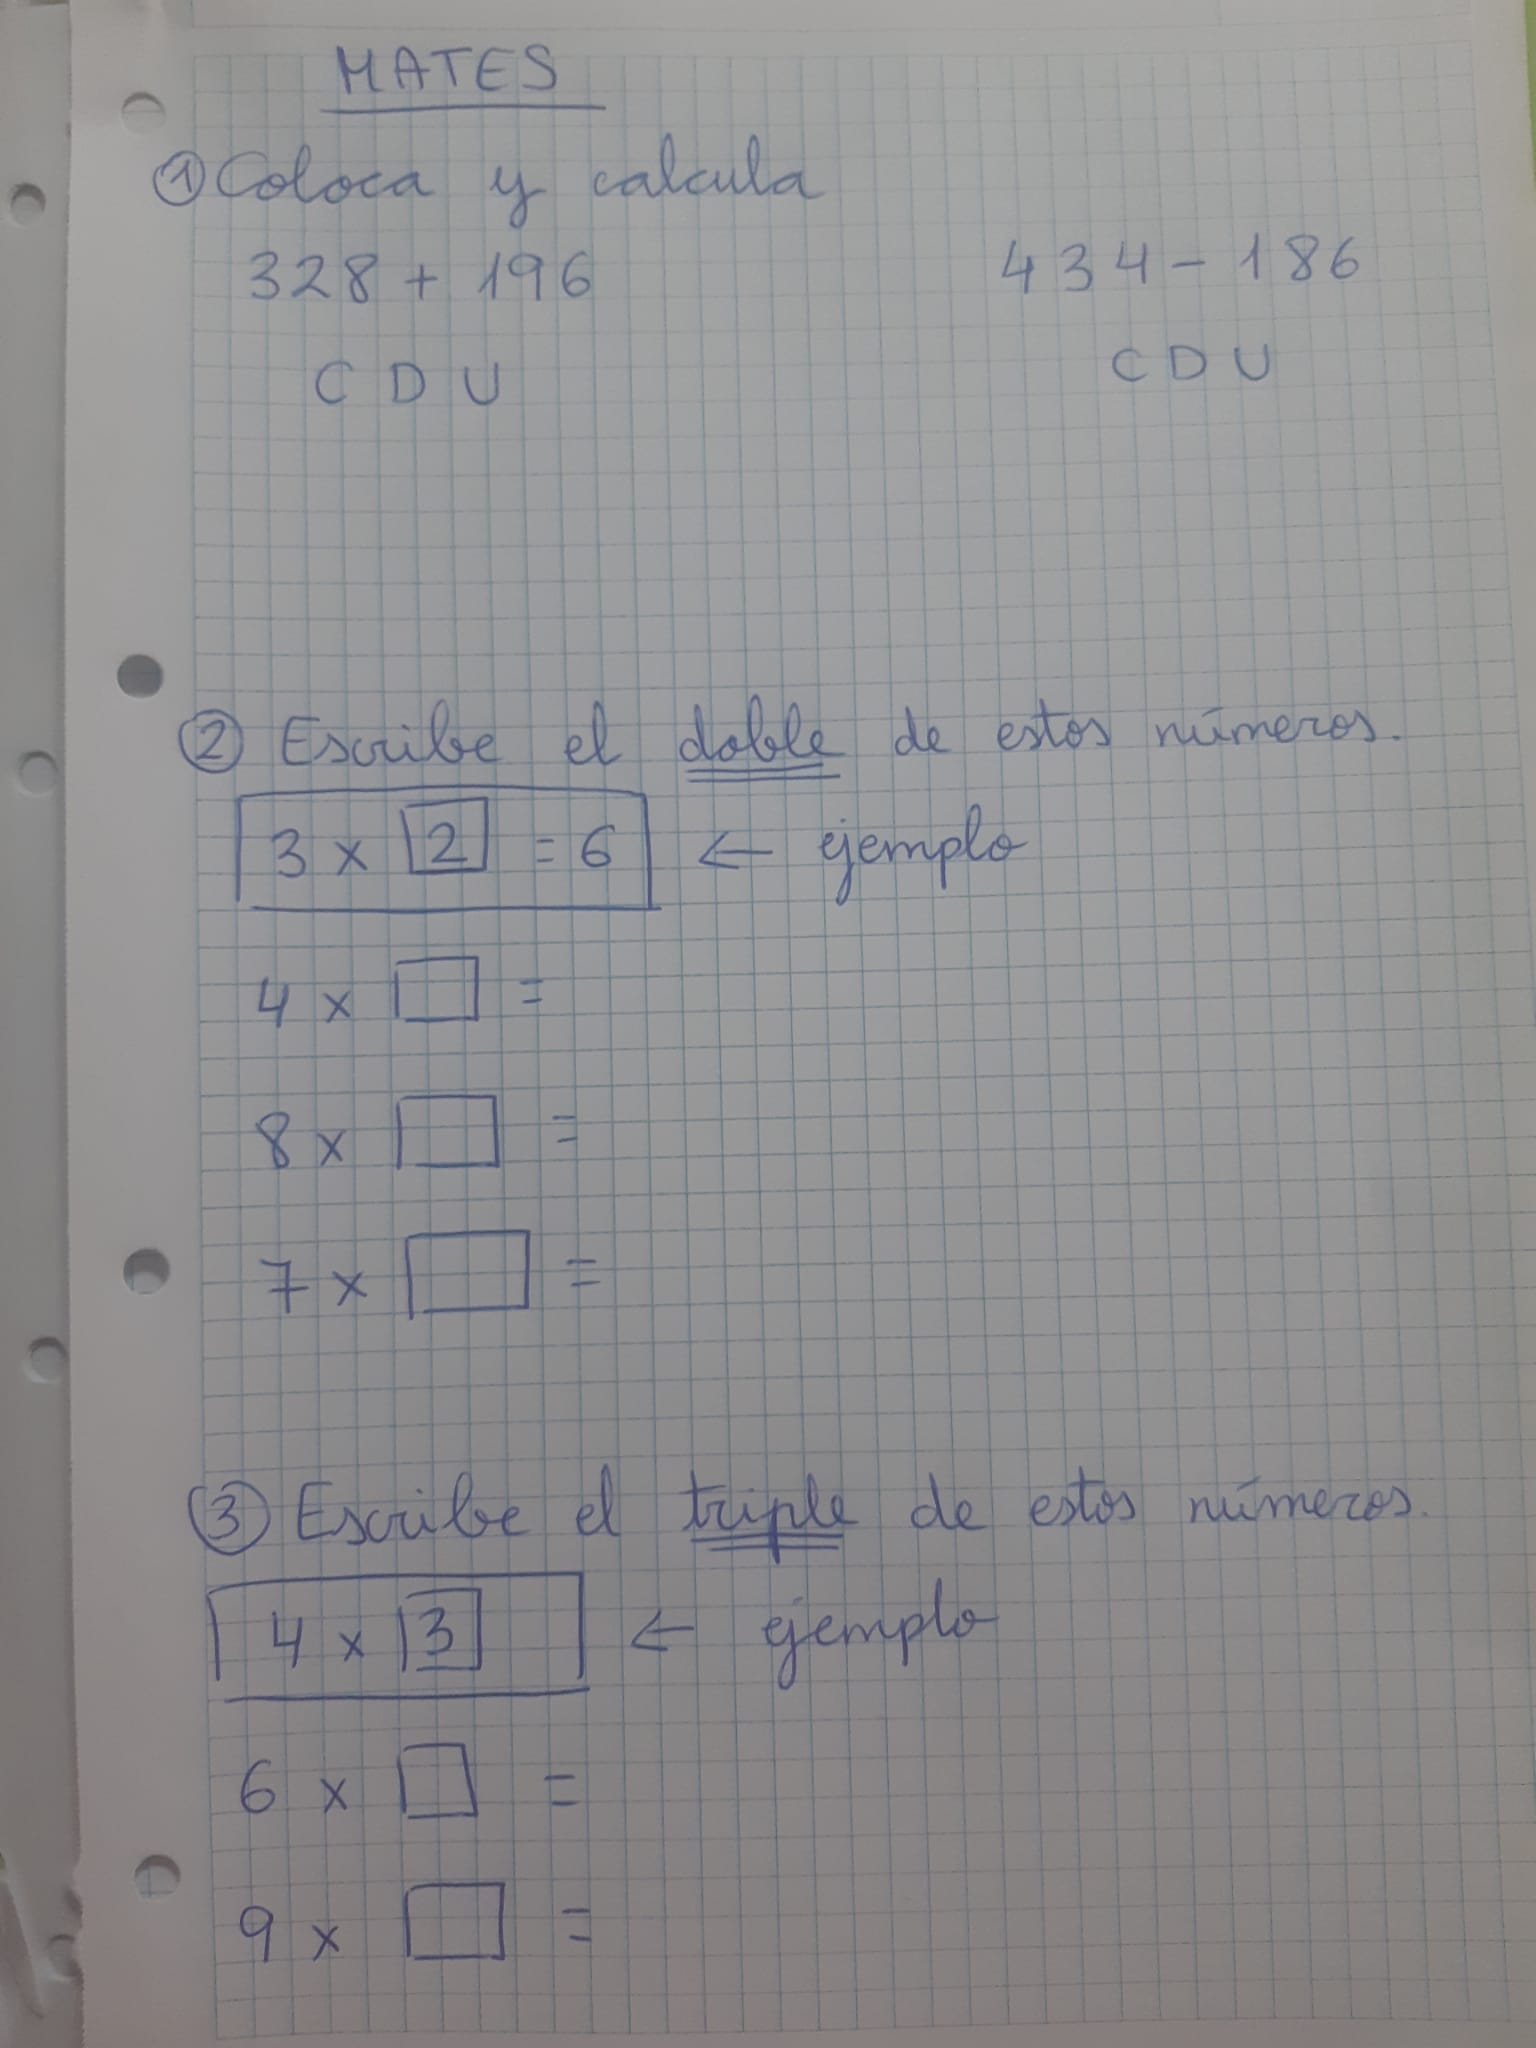 MATES
① Coloca y calcula
328 + 196 434 - 186
C D U C D U
② Escribe el doble de estos números.
3 x 2 = 6 ← ejemplo
4 x □ =
8 x □ =
7 x □ =
③ Escribe el triple de estos números.
4 x 3 ← ejemplo
6 x □ =
9 x □ =